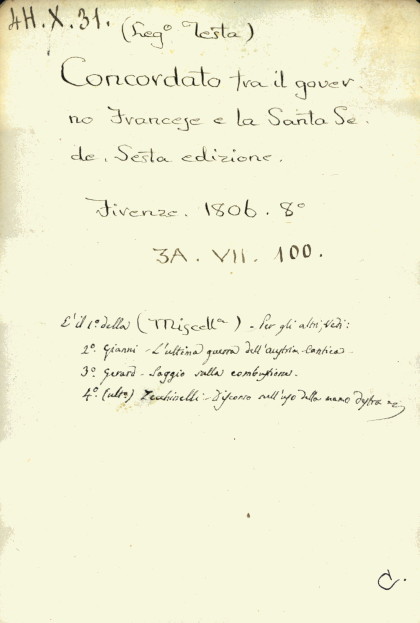 4H.X.31.
(Leg.º Testa)
Concordato tra il gover-
no Francese e la Santa Se-
de. Sesta edizione.
Firenze. 1806. 8º
3A. VII. 100.
E' il 1º della (Miscellª) - Per gli altri, vedi:
2º. Gianni - L'ultima guerra dell'austria - Cantica -
3º. Gerard - Saggio sulla combustione.
4º. (ultº) Zecchinelli - Discorso sull'uso della mano destra
C.